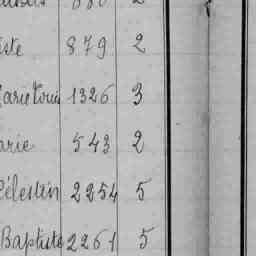 iste 879 2
Marie Louis 1326 3
arie 543 2
Célestin 2254 5
Baptiste 2261 5